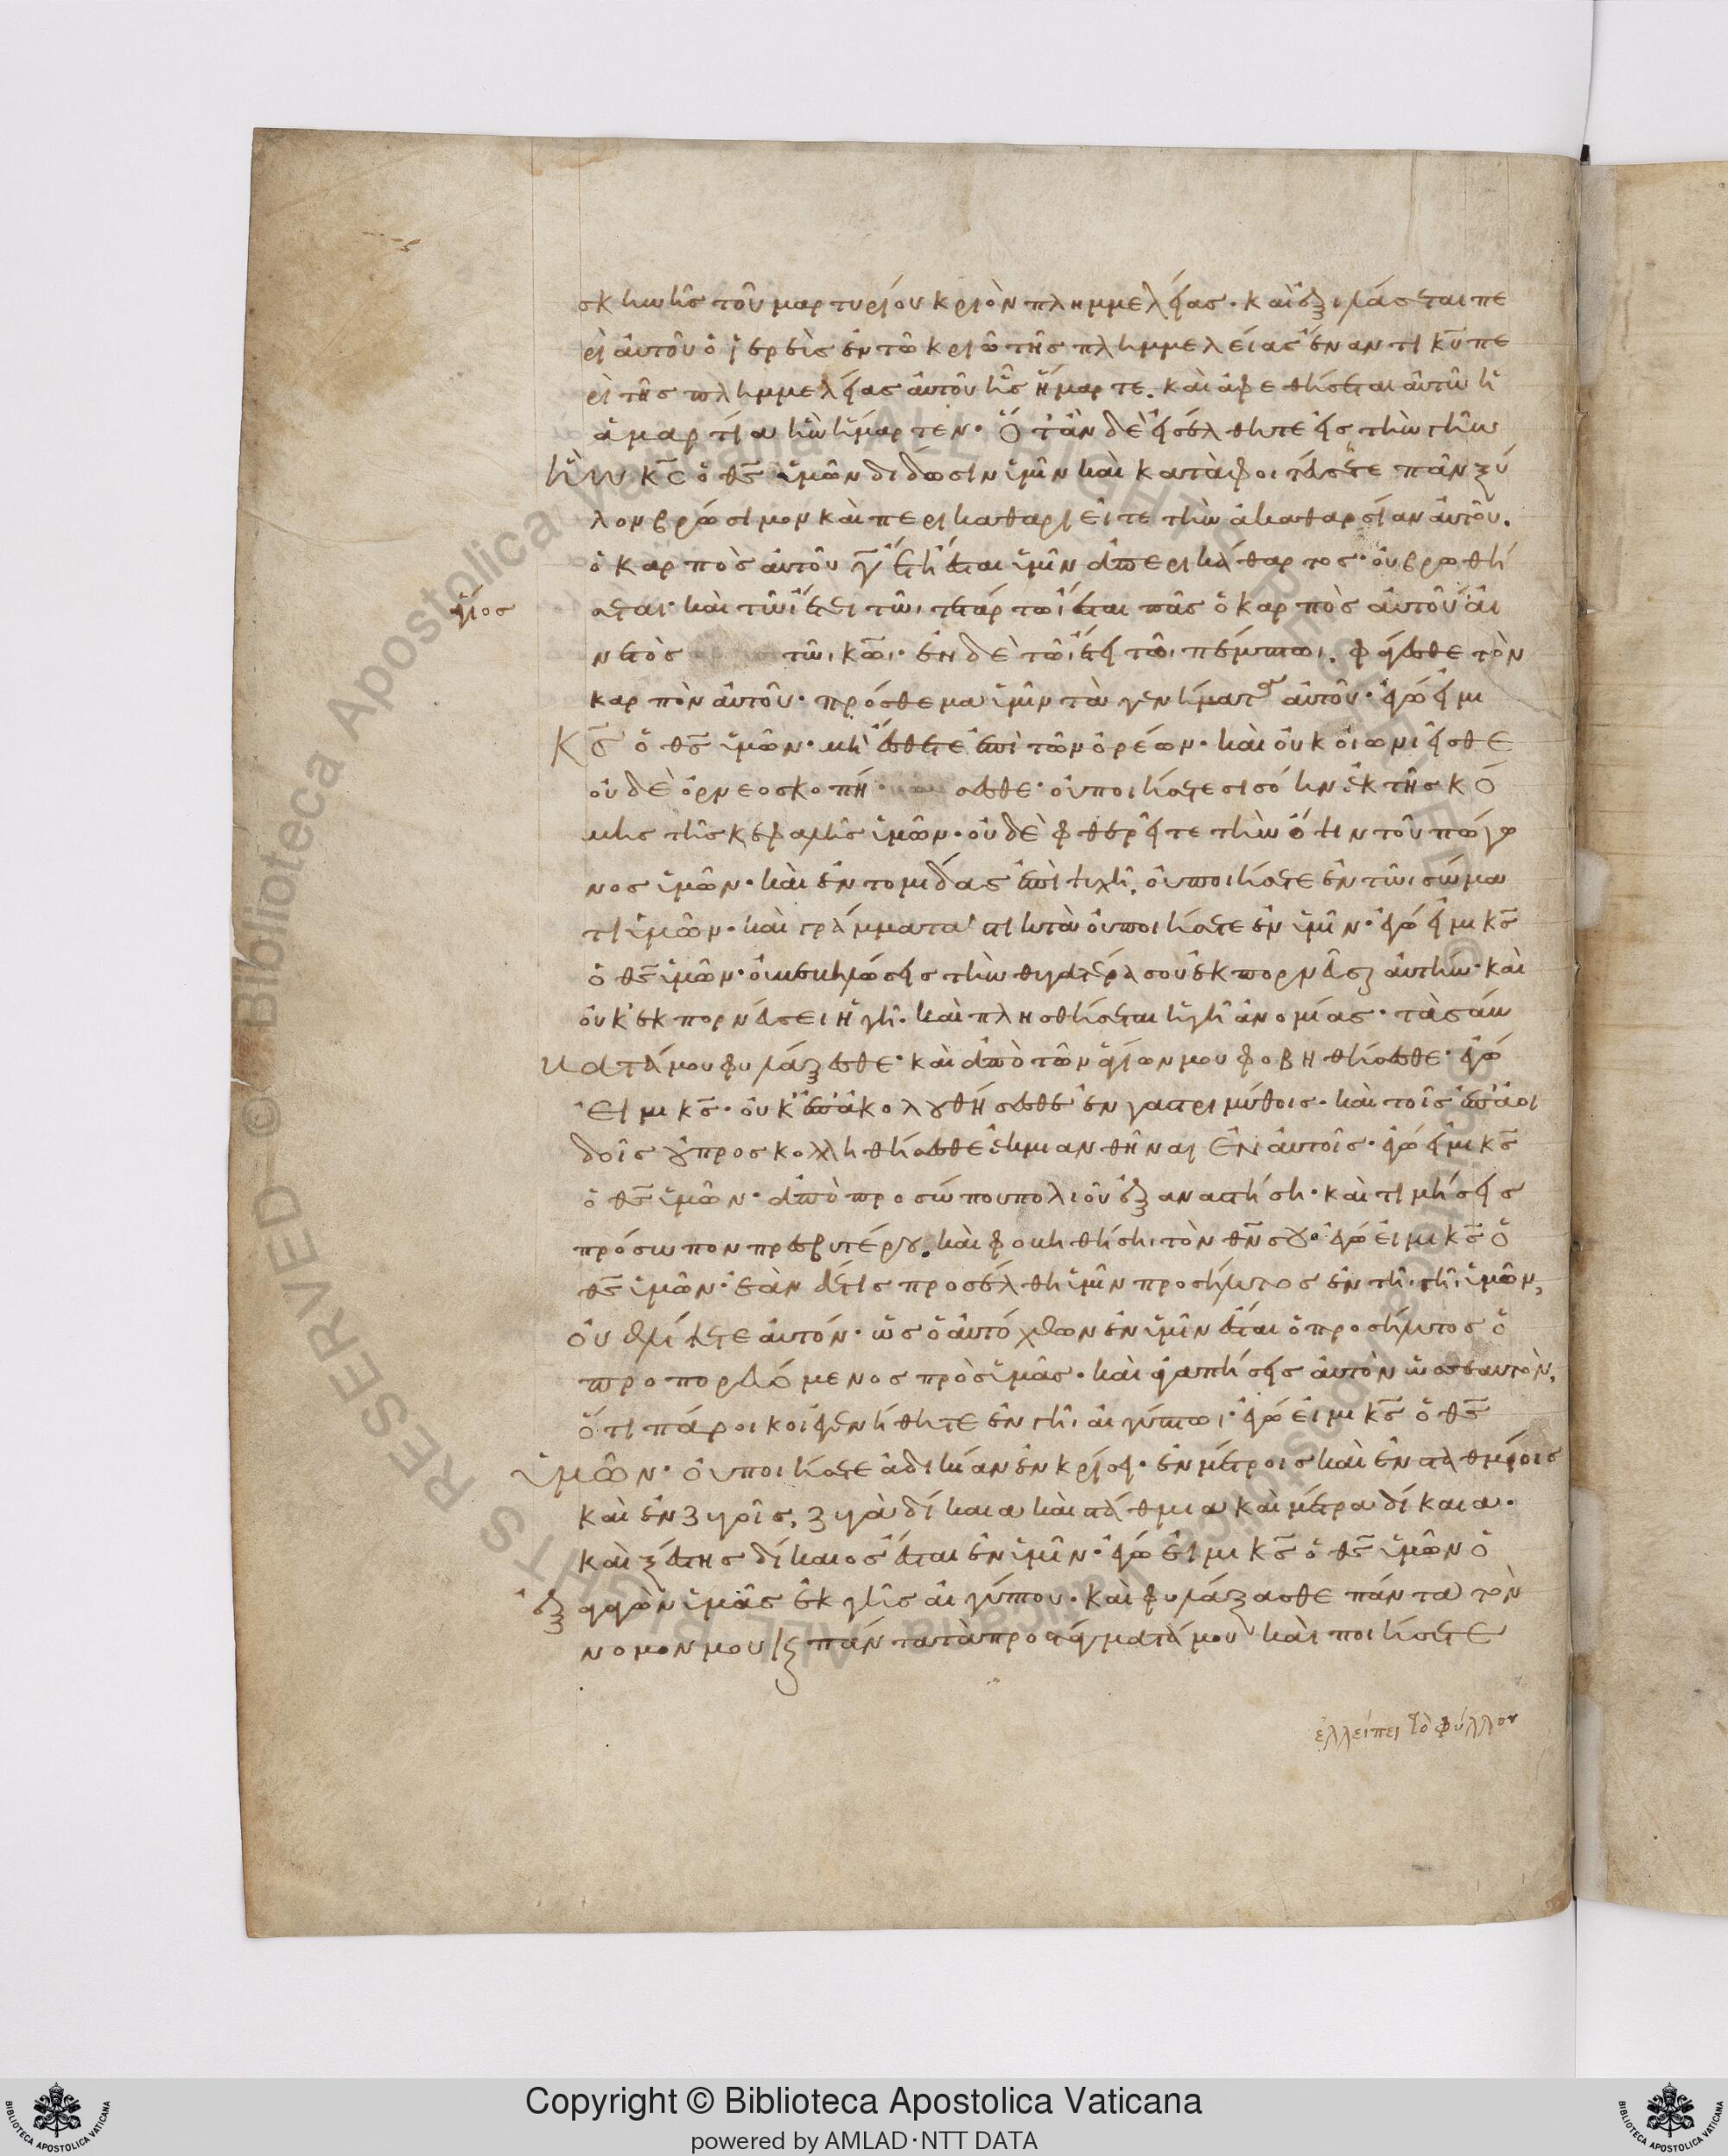 σκηνῆς τοῦ μαρτυρίου κριὸν πλημμελείας· καὶ ἐξιλάσεται πε
ρὶ αὐτοῦ ὁ ἱερεὺς ἐν τῶ κριῶ τῆς πλημμελείας ἔναντι κυ πε
ρὶ τῆς πλημμελείας αὐτοῦ ἧς ἥμαρτε. καὶ ἀφεθήσεται αὐτῶ ἡ
ἁμαρτία ἣν ἥμαρτεν· Ὅταν δὲ εἰσέλθητε εἰς τὴν γῆν
ἣν κς ὁ θς ὑμῶν δίδωσιν ὑμῖν καὶ καταφυτεύσετε πᾶν ξύ
λον βρώσιμον καὶ περικαθαριεῖτε τὴν ἀκαθαρσίαν αὐτοῦ.
ὁ καρπὸς αὐτοῦ γ ἔτη ἔσται ὑμῖν ἀπερικάθαρτος· οὐ βρωθή
σεται· καὶ τῶ ἔτει τῶι τετάρτω ἔσται πᾶς ὁ καρπὸς αὐτοῦ αἰ
ἅγιος
νετὸς τῶι κωι· ἐν δὲ τῶ ἔτει τῶι πέμπτωι. φάγεσθε τὸν
καρπὸν αὐτοῦ· πρόσθεμα ὑμῖν τὰ γενήματα αὐτοῦ· ἐγώ εἰμι
Κς ὁ θς ὑμῶν· μὴ ἔσθετε ἐπὶ τῶν ὀρέων· καὶ οὐκ οἰωνιεῖσθε
οὐδὲ ὀρνεοσκοπή σεσθε· οὐ ποιήσετε σισόην ἐκ τῆς κό
μης τῆς κεφαλῆς ὑμῶν· οὐδὲ φθερεῖτε τὴν ὄψιν τοῦ πώγω
νος ὑμῶν· καὶ ἐντομίδας ἐπὶ ψυχῆ. οὐ ποιήσετε ἐν τῶι σώμα
τι ὑμῶν· καὶ γράμματα στικτὰ οὐ ποιήσετε ἐν ὑμῖν· ἐγώ εἰμι κς
ὁ θς ὑμῶν· οὐ βεβηλώσεις τὴν θυγατέρα σου ἐκπορνεῦσαι αὐτήν· καὶ
οὐκ ἐκπορνεύσει ἡ γῆ· καὶ πλησθήσεται ἡ γῆ ἀνομίας· τὰ σάβ
βατά μου φυλάξεσθε· καὶ ἀπὸ τῶν ἁγίων μου φοβηθήσεσθε· ἐγώ
εἰμι κς· οὐκ ἐπακολουθήσεσθε ἐγγαστριμύθοις· καὶ τοῖς ἐπαοι
δοῖς οὐ προσκολληθήσεσθε ἐκμιανθῆναι ἐν αὐτοῖς· ἐγώ εἰμι κς
ὁ θς ὑμῶν· ἀπὸ προσώπου πολιοῦ ἐξαναστήση· καὶ τιμήσεις
πρόσωπον πρεσβυτέρου. καὶ φοβηθήση τὸν θν σου· ἐγώ εἰμι κς ὁ
θς ὑμῶν· ἐὰν δέ τις προσέλθη ὑμῖν προσήλυτος ἐν τῆ γῆ ὑμῶν,
οὐ θλίψετε αὐτόν· ὡς ὁ αὐτόχθων ἐν ὑμῖν ἔσται ὁ προσήλυτος ὁ
προπορευόμενος πρὸς ὑμᾶς· καὶ ἀγαπήσεις αὐτὸν ὡς σεαυτόν,
ὅτι πάροικοι ἐγενήθητε ἐν γῆ αἰγύπτωι· ἐγώ εἰμι κς ὁ θς
ὑμῶν· οὐ ποιήσετε ἄδικον ἐν κρίσει· ἐν μέτροις καὶ ἐν σταθμίοις
καὶ ἐν ζυγοῖς, ζυγὰ δίκαια καὶ στάθμια καὶ μέτρα δίκαια·
καὶ ξέστης δίκαιος ἔσται ἐν ὑμῖν· ἐγώ εἰμι κς ὁ θς ὑμῶν ὁ
ἐξαγαγὼν ὑμᾶς ἐκ γῆς αἰγύπτου· καὶ φυλάξασθε πάντα τὸν
νομον μου κ πάντα τὰ προστάγματά μου καὶ ποιήσετε
ἐλλείπει τὸ φύλλον
© Biblioteca Apostolica Vaticana ALL RIGHTS RESERVED
Copyright © Biblioteca Apostolica Vaticana
powered by AMLAD·NTT DATA
BIBLIOTECA APOSTOLICA VATICANA
BIBLIOTECA APOSTOLICA VATICANA